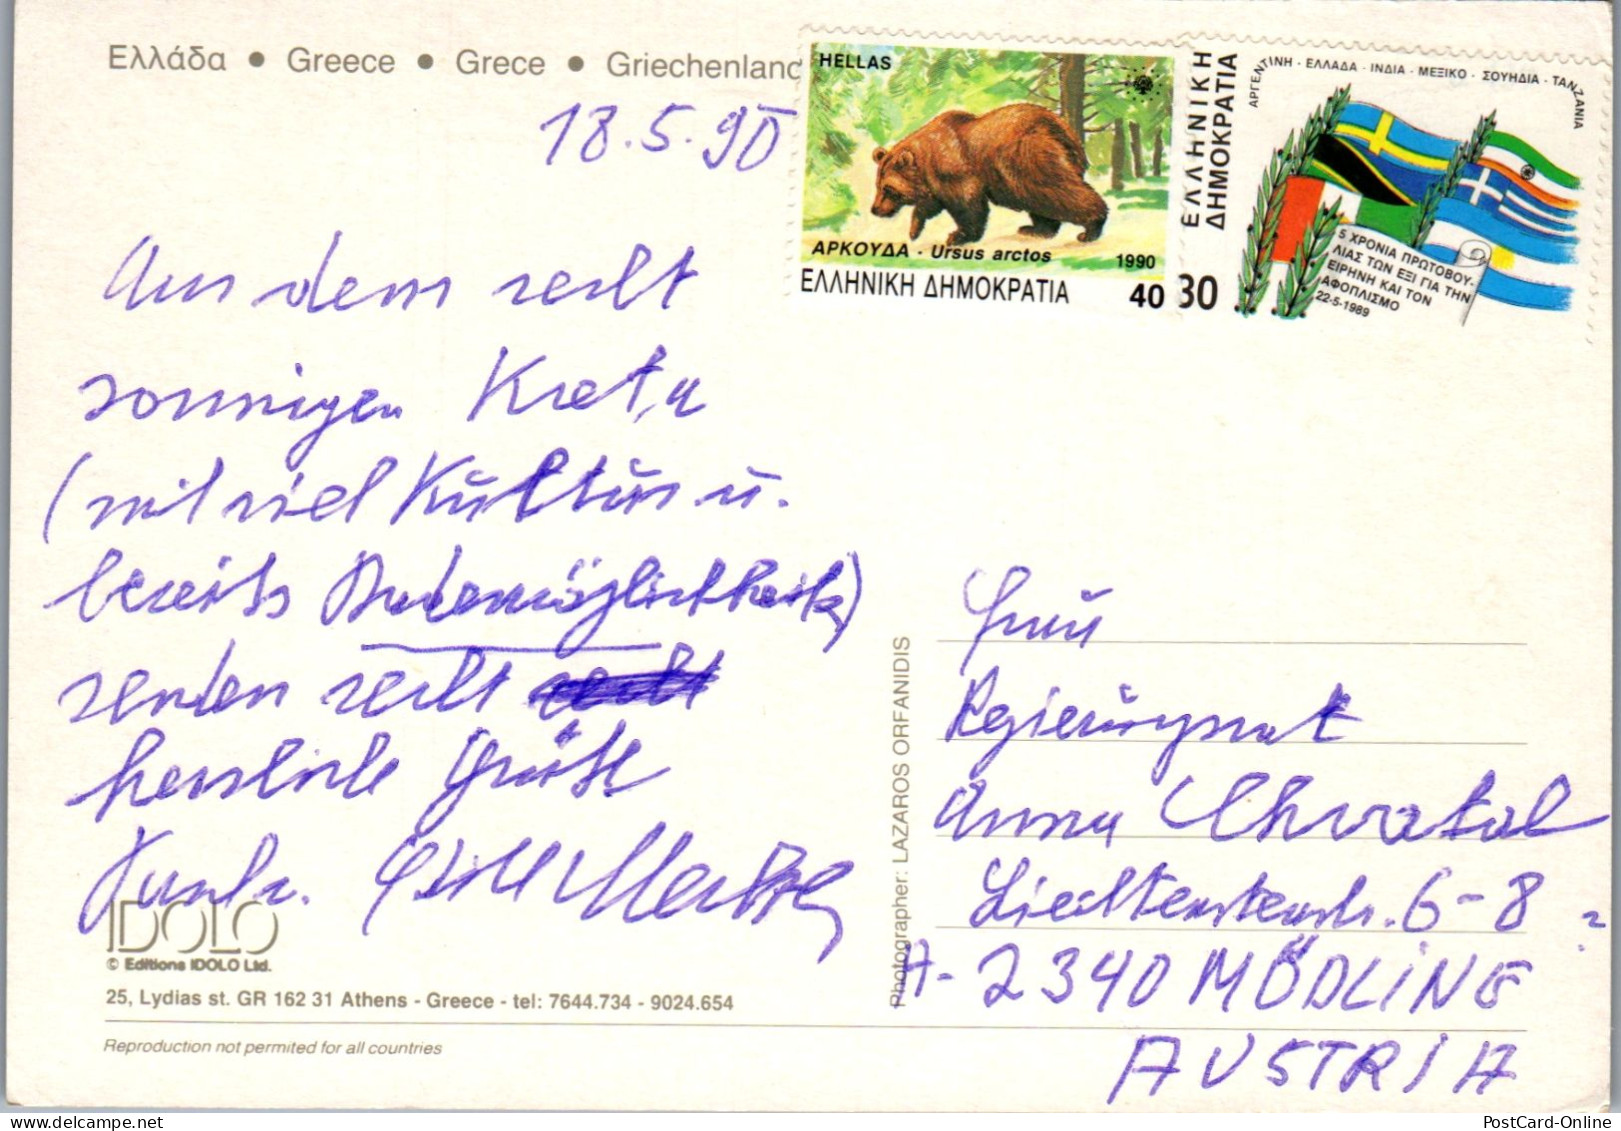 Ελλάδα • Greece • Grece • Griechenland
18.5.90
HELLAS
ΑΡΚΟΥΔΑ - Ursus arctos 1990
ΕΛΛΗΝΙΚΗ ΔΗΜΟΚΡΑΤΙΑ 40
ΕΛΛΗΝΙΚΗ
ΔΗΜΟΚΡΑΤΙΑ
ΑΡΓΕΝΤΙΝΗ - ΕΛΛΑΔΑ - ΙΝΔΙΑ - ΜΕΞΙΚΟ - ΣΟΥΗΔΙΑ - ΤΑΝΖΑΝΙΑ
5 ΧΡΟΝΙΑ ΠΡΩΤΟΒΟΥ-
ΛΙΑΣ ΤΩΝ ΕΞΙ ΓΙΑ ΤΗΝ
ΕΙΡΗΝΗ ΚΑΙ ΤΟΝ
ΑΦΟΠΛΙΣΜΟ
22-5-1989
30
Aus dem recht
sonnigen Kreta
(mit viel Kultur u.
bereits Bademöglichkeit)
senden recht
herzliche Grüße
Photographer: LAZAROS ORFANIDIS
Frau
Regierungsrat
Anna Chvatal
Liechtensteinstr. 6-8
A-2340 MÖDLING
AUSTRIA
IDOLO
© Editions IDOLO Ltd.
25, Lydias st. GR 162 31 Athens - Greece - tel: 7644.734 - 9024.654
Reproduction not permited for all countries
PostCard-Online